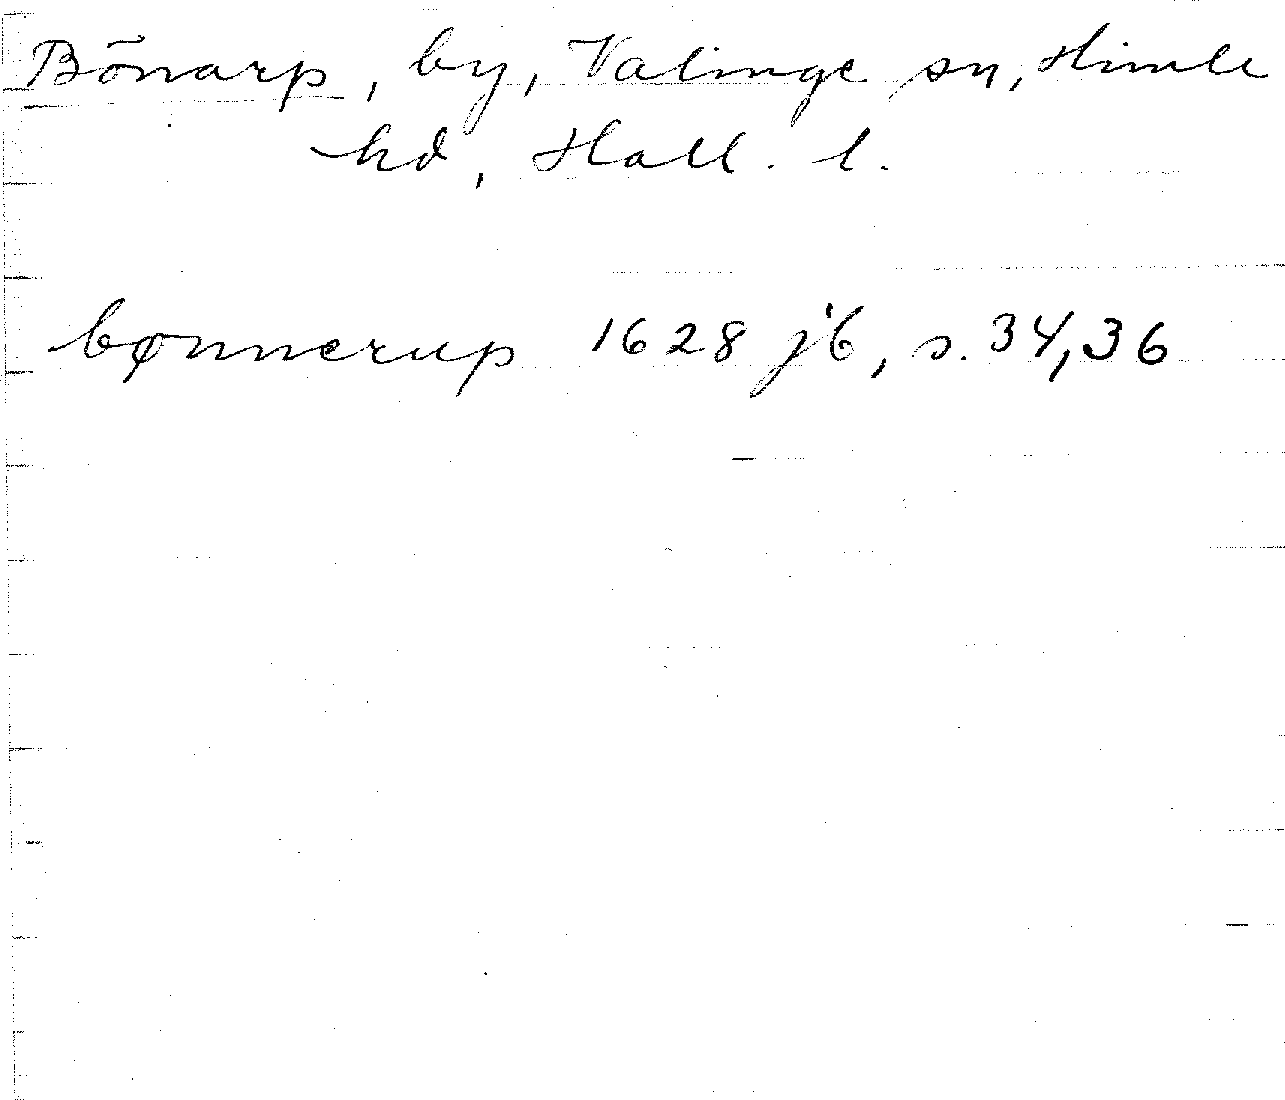 Bönarp, by, Valinge sn, Himle
hd, Hall. l.
bønnerup 1628 jb, s. 34,36